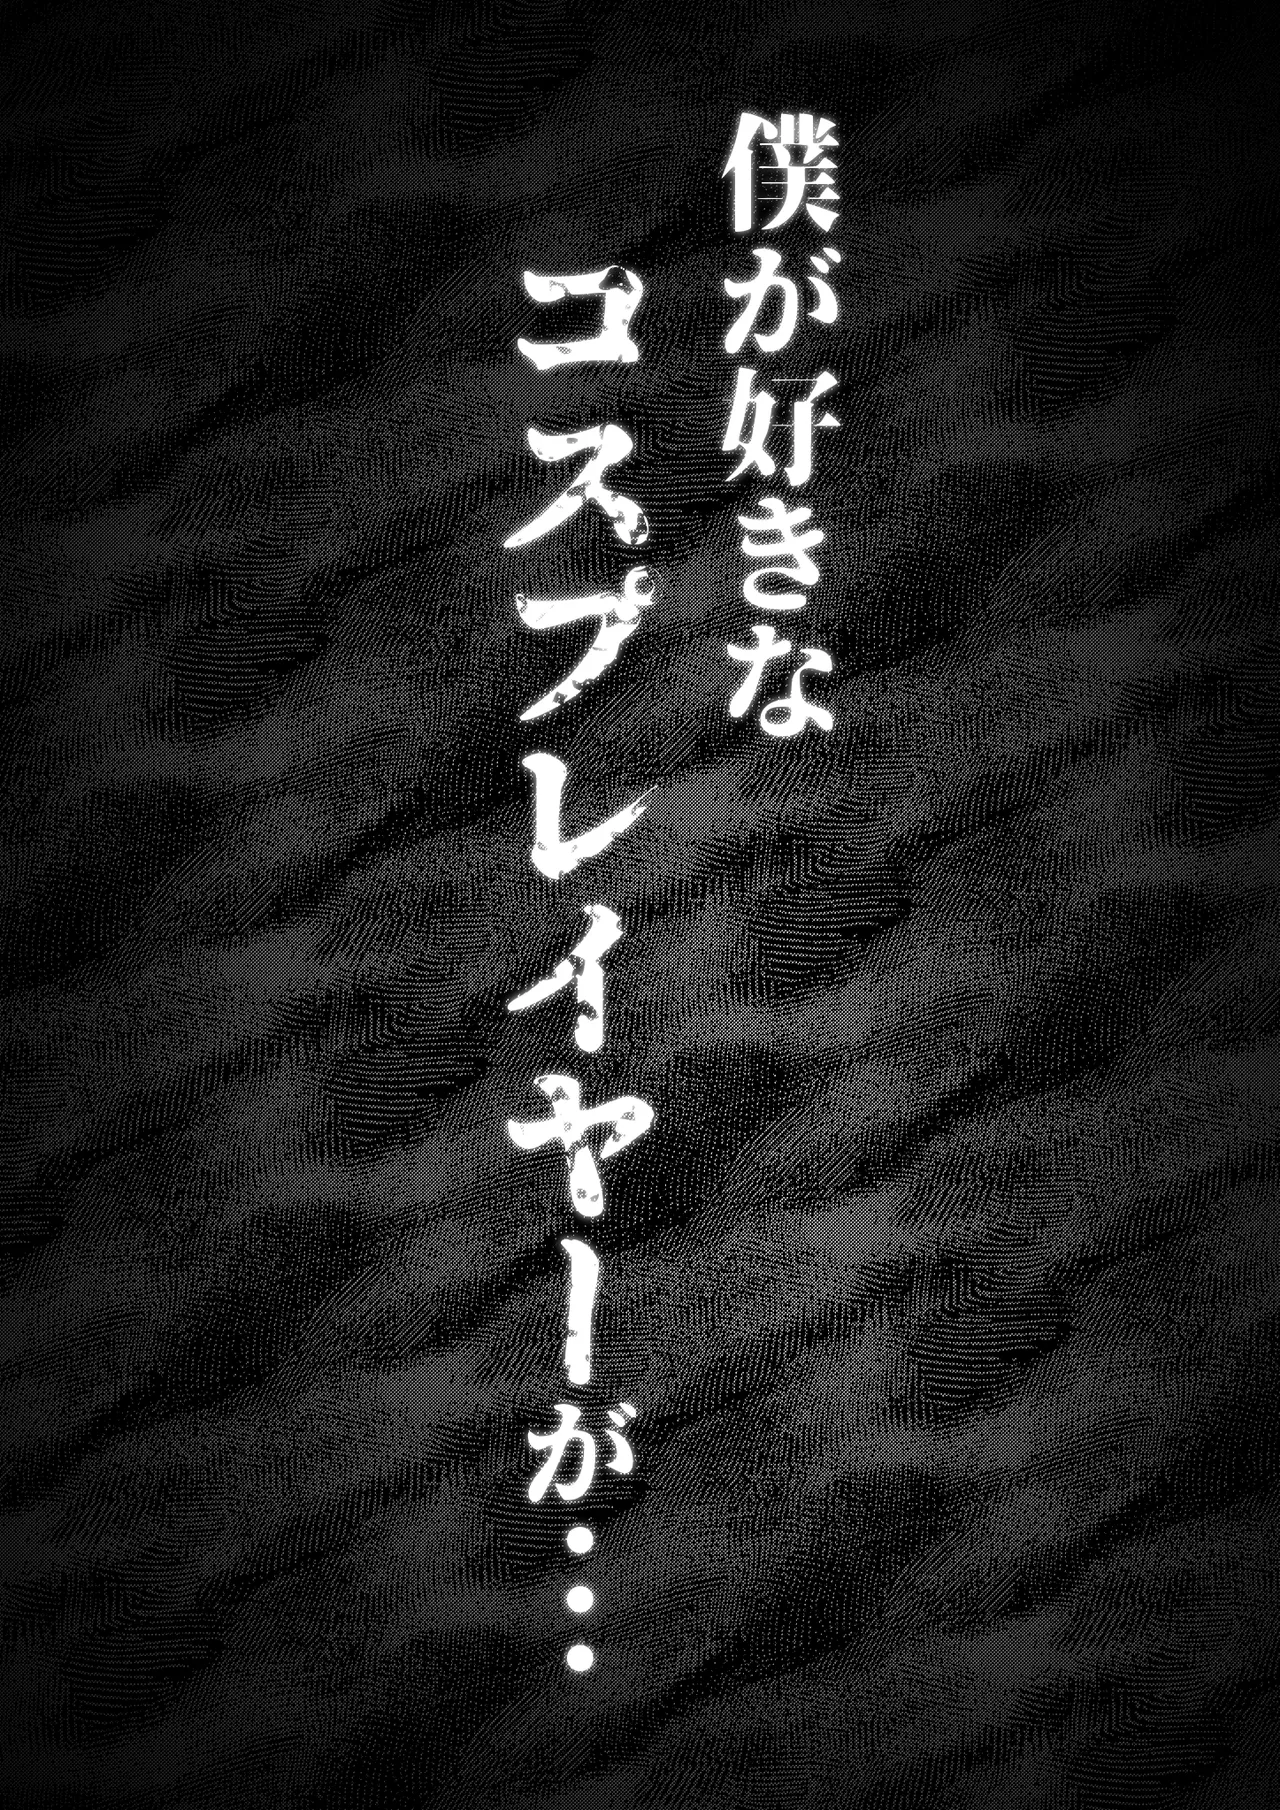 僕が好きな
コスプレイヤーが・・・